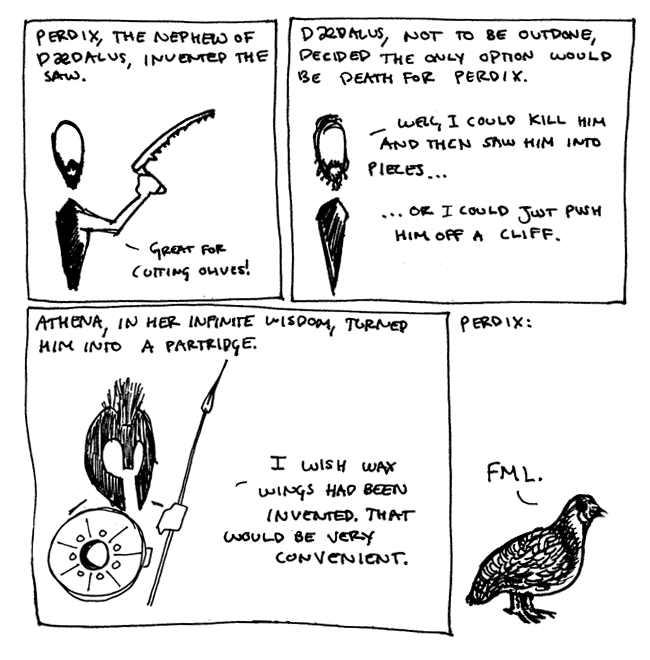 PERDIX, THE NEPHEW OF
DÆDALUS, INVENTED THE
SAW.
GREAT FOR
CUTTING OLIVES!
DÆDALUS, NOT TO BE OUTDONE,
DECIDED THE ONLY OPTION WOULD
BE DEATH FOR PERDIX.
WELL, I COULD KILL HIM
AND THEN SAW HIM INTO
PIECES...
...OR I COULD JUST PUSH
HIM OFF A CLIFF.
ATHENA, IN HER INFINITE WISDOM, TURNED
HIM INTO A PARTRIDGE.
I WISH WAX
WINGS HAD BEEN
INVENTED. THAT
WOULD BE VERY
CONVENIENT.
PERDIX:
FML.